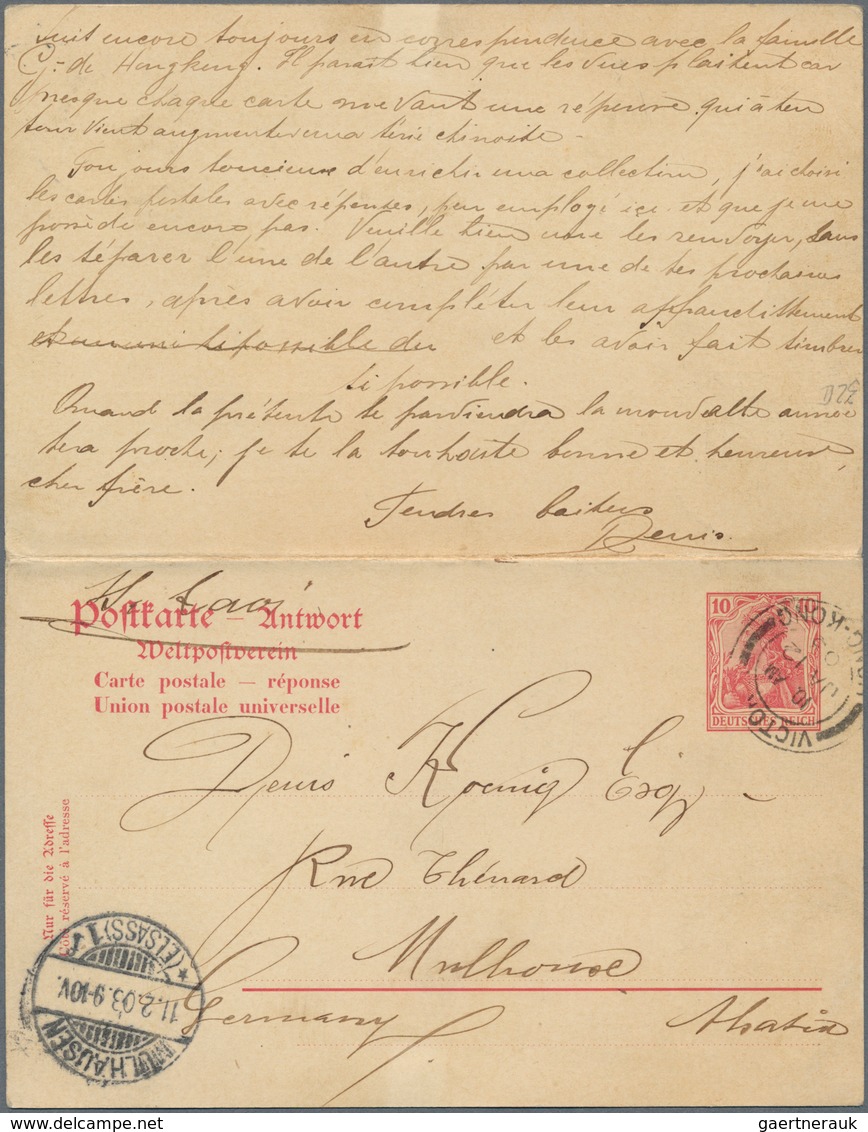 suis encore toujours en correspondence avec la famille
G. de Hongkong. Il parait bien que les vues plaisent car
presque chaque carte me vaut une réponse qui à son
tour vient augmenter ma série chinoise.
Toujours soucieux d'enrichir ma collection, j'ai choisi
les cartes postales avec réponses, peu employé ici et que je ne
possède encore pas. Veuille bien me les renvoyer, sans
les séparer l'une de l'autre par une de tes prochaines
lettres, après avoir compléter leur
et les avoir fait timbrer
si possible.
Quand la présente te parviendra la nouvelle année
sera proche; je te la souhaite bonne et heureuse,
cher frère.
Tendres baisers
Denis
Postkarte – Antwort
Weltpostverein
Carte postale — réponse
Union postale universelle
10 10
DEUTSCHES REICH
VICTO G-KONG
10 AM
JA 12
03
Denis Koenig Esq
Rue Thénard
Mulhouse
Germany Alsatia
Nur für die Adresse
Côté réservé à l'adresse
MÜLHAUSEN
11.2.03.9-10V.
*(ELSASS)1
gaertnerauk